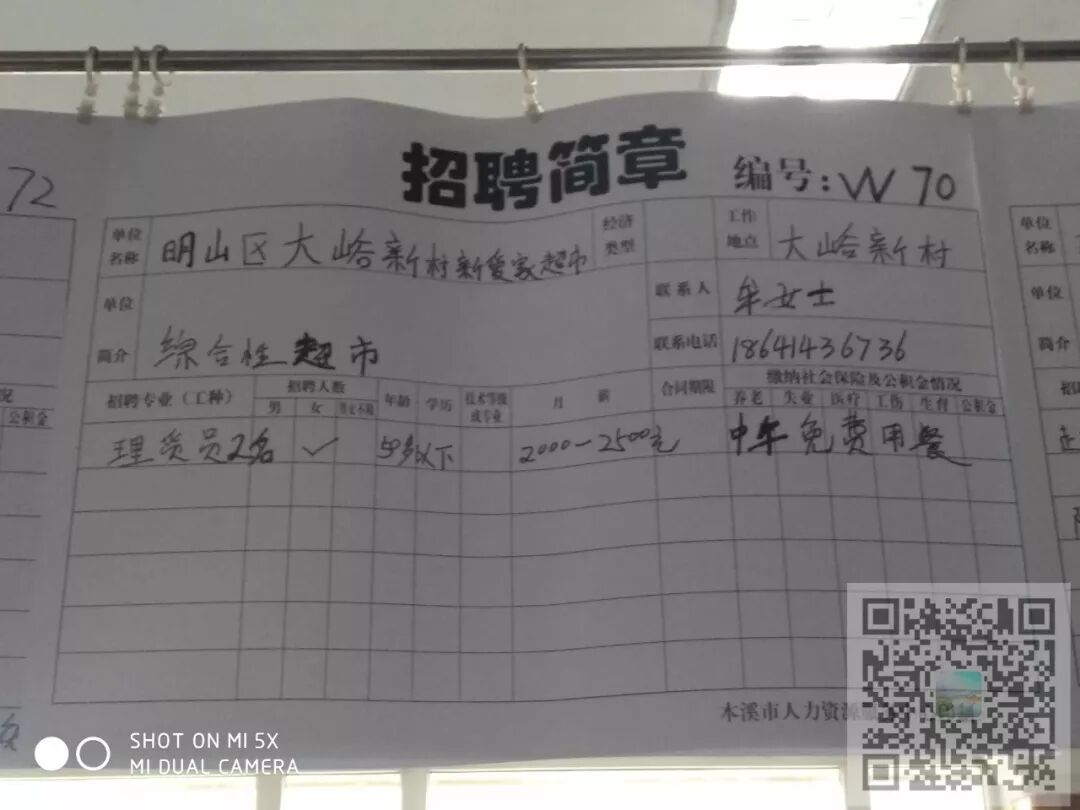 72
招聘简章
编号:W 70
单位名称 明山区大峪新村新爱家超市 经济类型 工作地点 大峪新村
单位简介 综合性超市 联系人 牟女士
联系电话 18641436736
招聘专业（工种） 招聘人数 年龄 学历 技术等级或专业 月 薪 合同期限 缴纳社会保险及公积金情况
男 女 男女不限 养老 失业 医疗 工伤 生育 公积金
理货员2名 ✓ 50岁以下 2000-2500元 中午免费用餐
木溪市人力资源
况
公积金
单位
名称
单位
简介
SHOT ON MI 5X
MI DUAL CAMERA